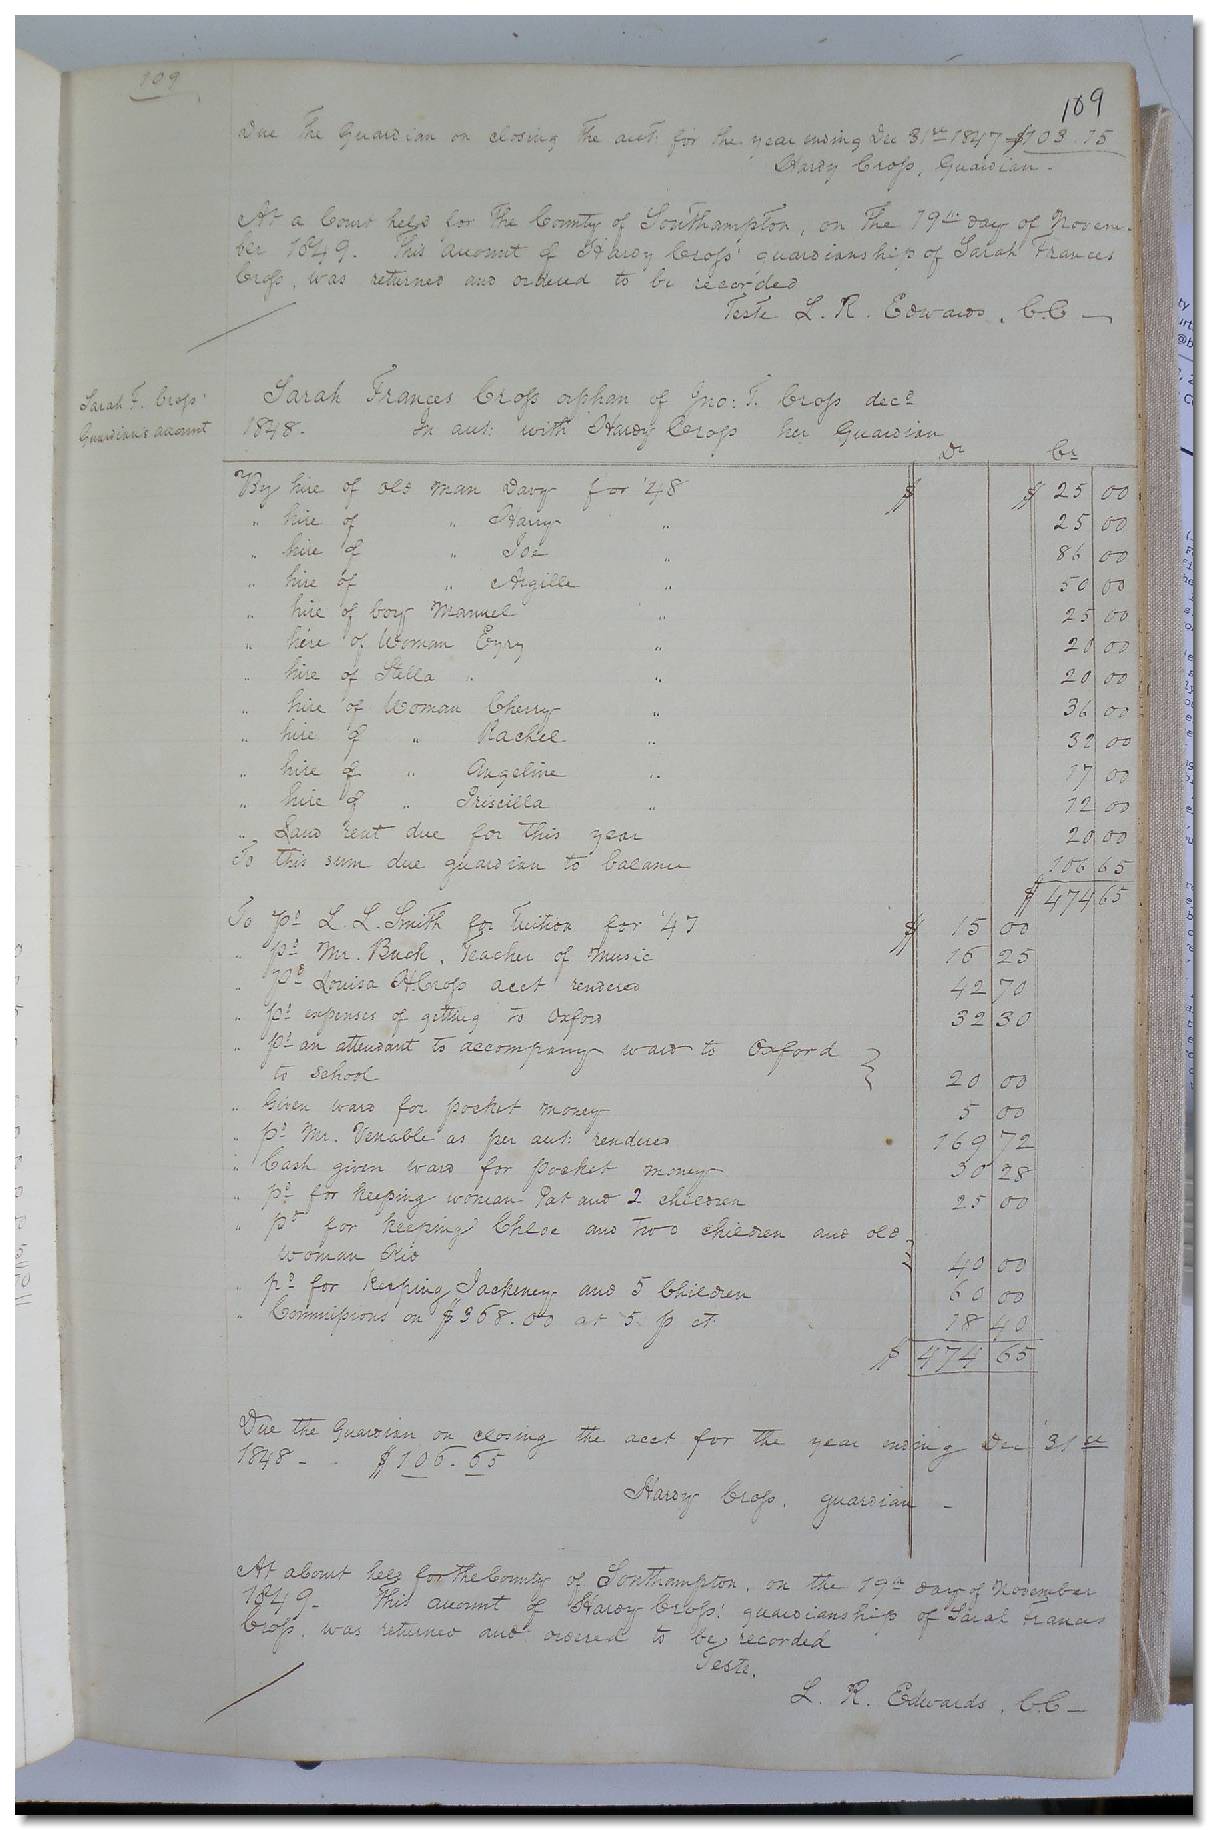 109
109
Due The Guardian on closing The acct: for the year ending Dec 31st 1847 $103.15
Hardy Cross, Guardian.
At a Court held for The County of Southampton, on The 19th day of Novem-
ber 1849. This account of Hardy Cross' guardianship of Sarah Frances
Cross, was returned and ordered to be recorded
Teste L. R. Edwards, C.C
Sarah F. Cross'
Guardian's account
Sarah Frances Cross orphan of Jno: T. Cross decd
1848. In acct: with Hardy Cross her Guardian
Dr Cr
By hire of old man Davy for '48 $ $ 25 00
" hire of " Harry " 25 00
" hire of " Joe " 86 00
" hire of " Argille " 50 00
" hire of boy Manuel " 25 00
" hire of Woman Eyry " 20 00
" hire of Stella " " 20 00
" hire of Woman Cherry " 36 00
" hire of " Rachel " 32 00
" hire of " Angeline " 17 00
" hire of " Priscilla " 12 00
" Land rent due for this year 20 00
To this sum due guardian to balance 106 65
$ 474 65
To pd L. L. Smith for Tuition for '47 $ 15 00
" pd Mr. Buck, Teacher of Music 16 25
" Pd Louisa H. Cross acct rendered 42 70
" pd expenses of getting to Oxford 32 30
" pd an attendant to accompany ward to Oxford
to School 20 00
" Given ward for pocket money 5 00
" pd Mr. Venable as per acct: rendered 169 72
" Cash given ward for pocket money 30 28
" pd for keeping woman Pat and 2 children 25 00
" pd for keeping Chloe and two children and old
woman 40 00
" pd for keeping Jackeney and 5 Children 60 00
" Commissions on $368.00 at 5 p ct 18 40
$ 474 65
Due the Guardian on closing the acct for the year ending Dec 31st
1848 - . $106.65
Hardy Cross. guardian -
At a Court held for the County of Southampton, on the 19th day of November
1849. This account of Hardy Cross' guardianship of Sarah Frances
Cross, was returned and ordered to be recorded
Teste.
L. R. Edwards, C.C